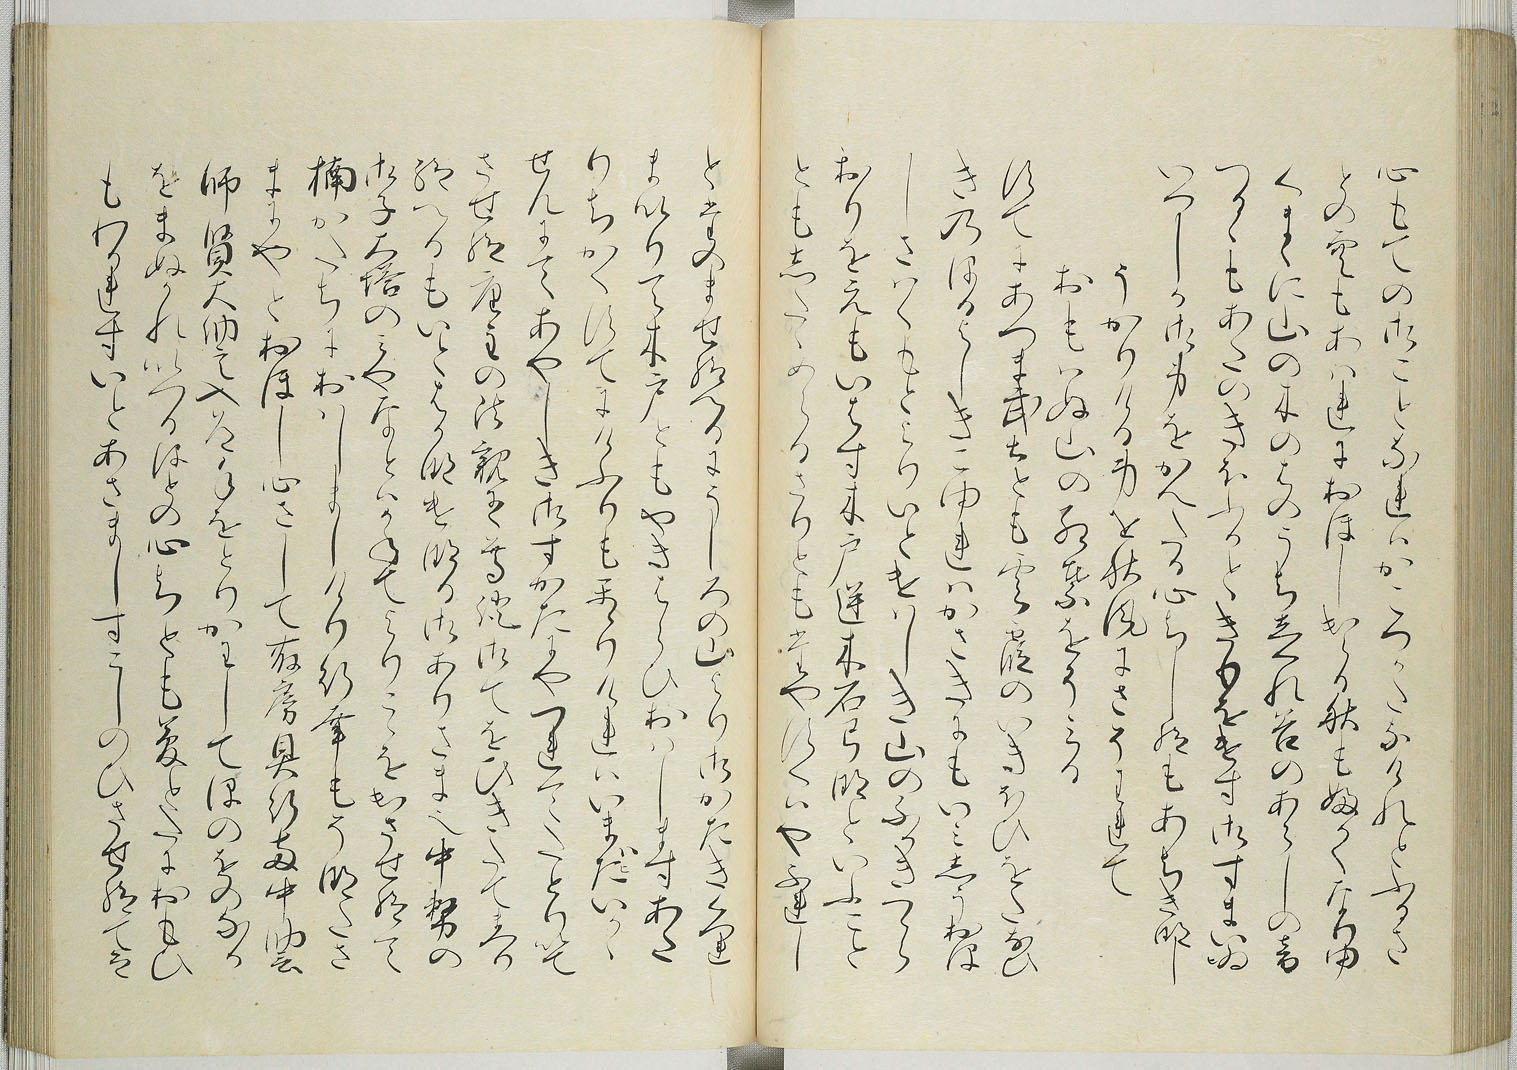 心もての御ことなれはかこつかたなけれとふるさ
との空もあはれにおほし出る秋も娘かくなりゆ
くまゝに山の木のはのうちしくれ谷のあらしの音
つるゝもあたのきほふるときもをけす御すまゐ
いつしか御身をかへたる心ちし給もあちきなし
うかりける身を秋風にさそはれて
おもはぬ山の紅葉をそみる
すてにあつま武士とも雲霞のいきほひをたなひ
きのほるよしきこゆれはかさきにもいみしうおほ
しさはくもとよりいとけはしき山のふかきつゝら
おりをえもいはす木戸逆木石弓なといふこと
ともしたゝめらるさりともたやすくはやふれし
とたのませ給へるにうしろの山より御かたきくつれ
まいりて木戸ともやきはらひおはしますあた
りちかくすてにけふりもかゝりけれはいまはいかゝ
せんにてあやしき御すかたにやつれてたとりいて
させ給座主の法親王尊澄御てをひきたてまつり
給へるもいとはかなけなる御ありさま也中務の
御子大塔のみやなとはかねてよりこゝをいてさせ給て
楠かたちにおはしましけり行幸もそなたさ
まにやとおほし心さして藤房具行両中納言
師賢大納言入道手をとりかはしてほのをの中
をまぬかれいつるほとの心ちとも夢とたにおもひ
もわかれすいとあさましすこしのひさせ給てそ